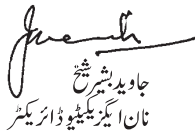 جاوید بشیر شیخ
نان ایگزیکیٹیو ڈائریکٹر